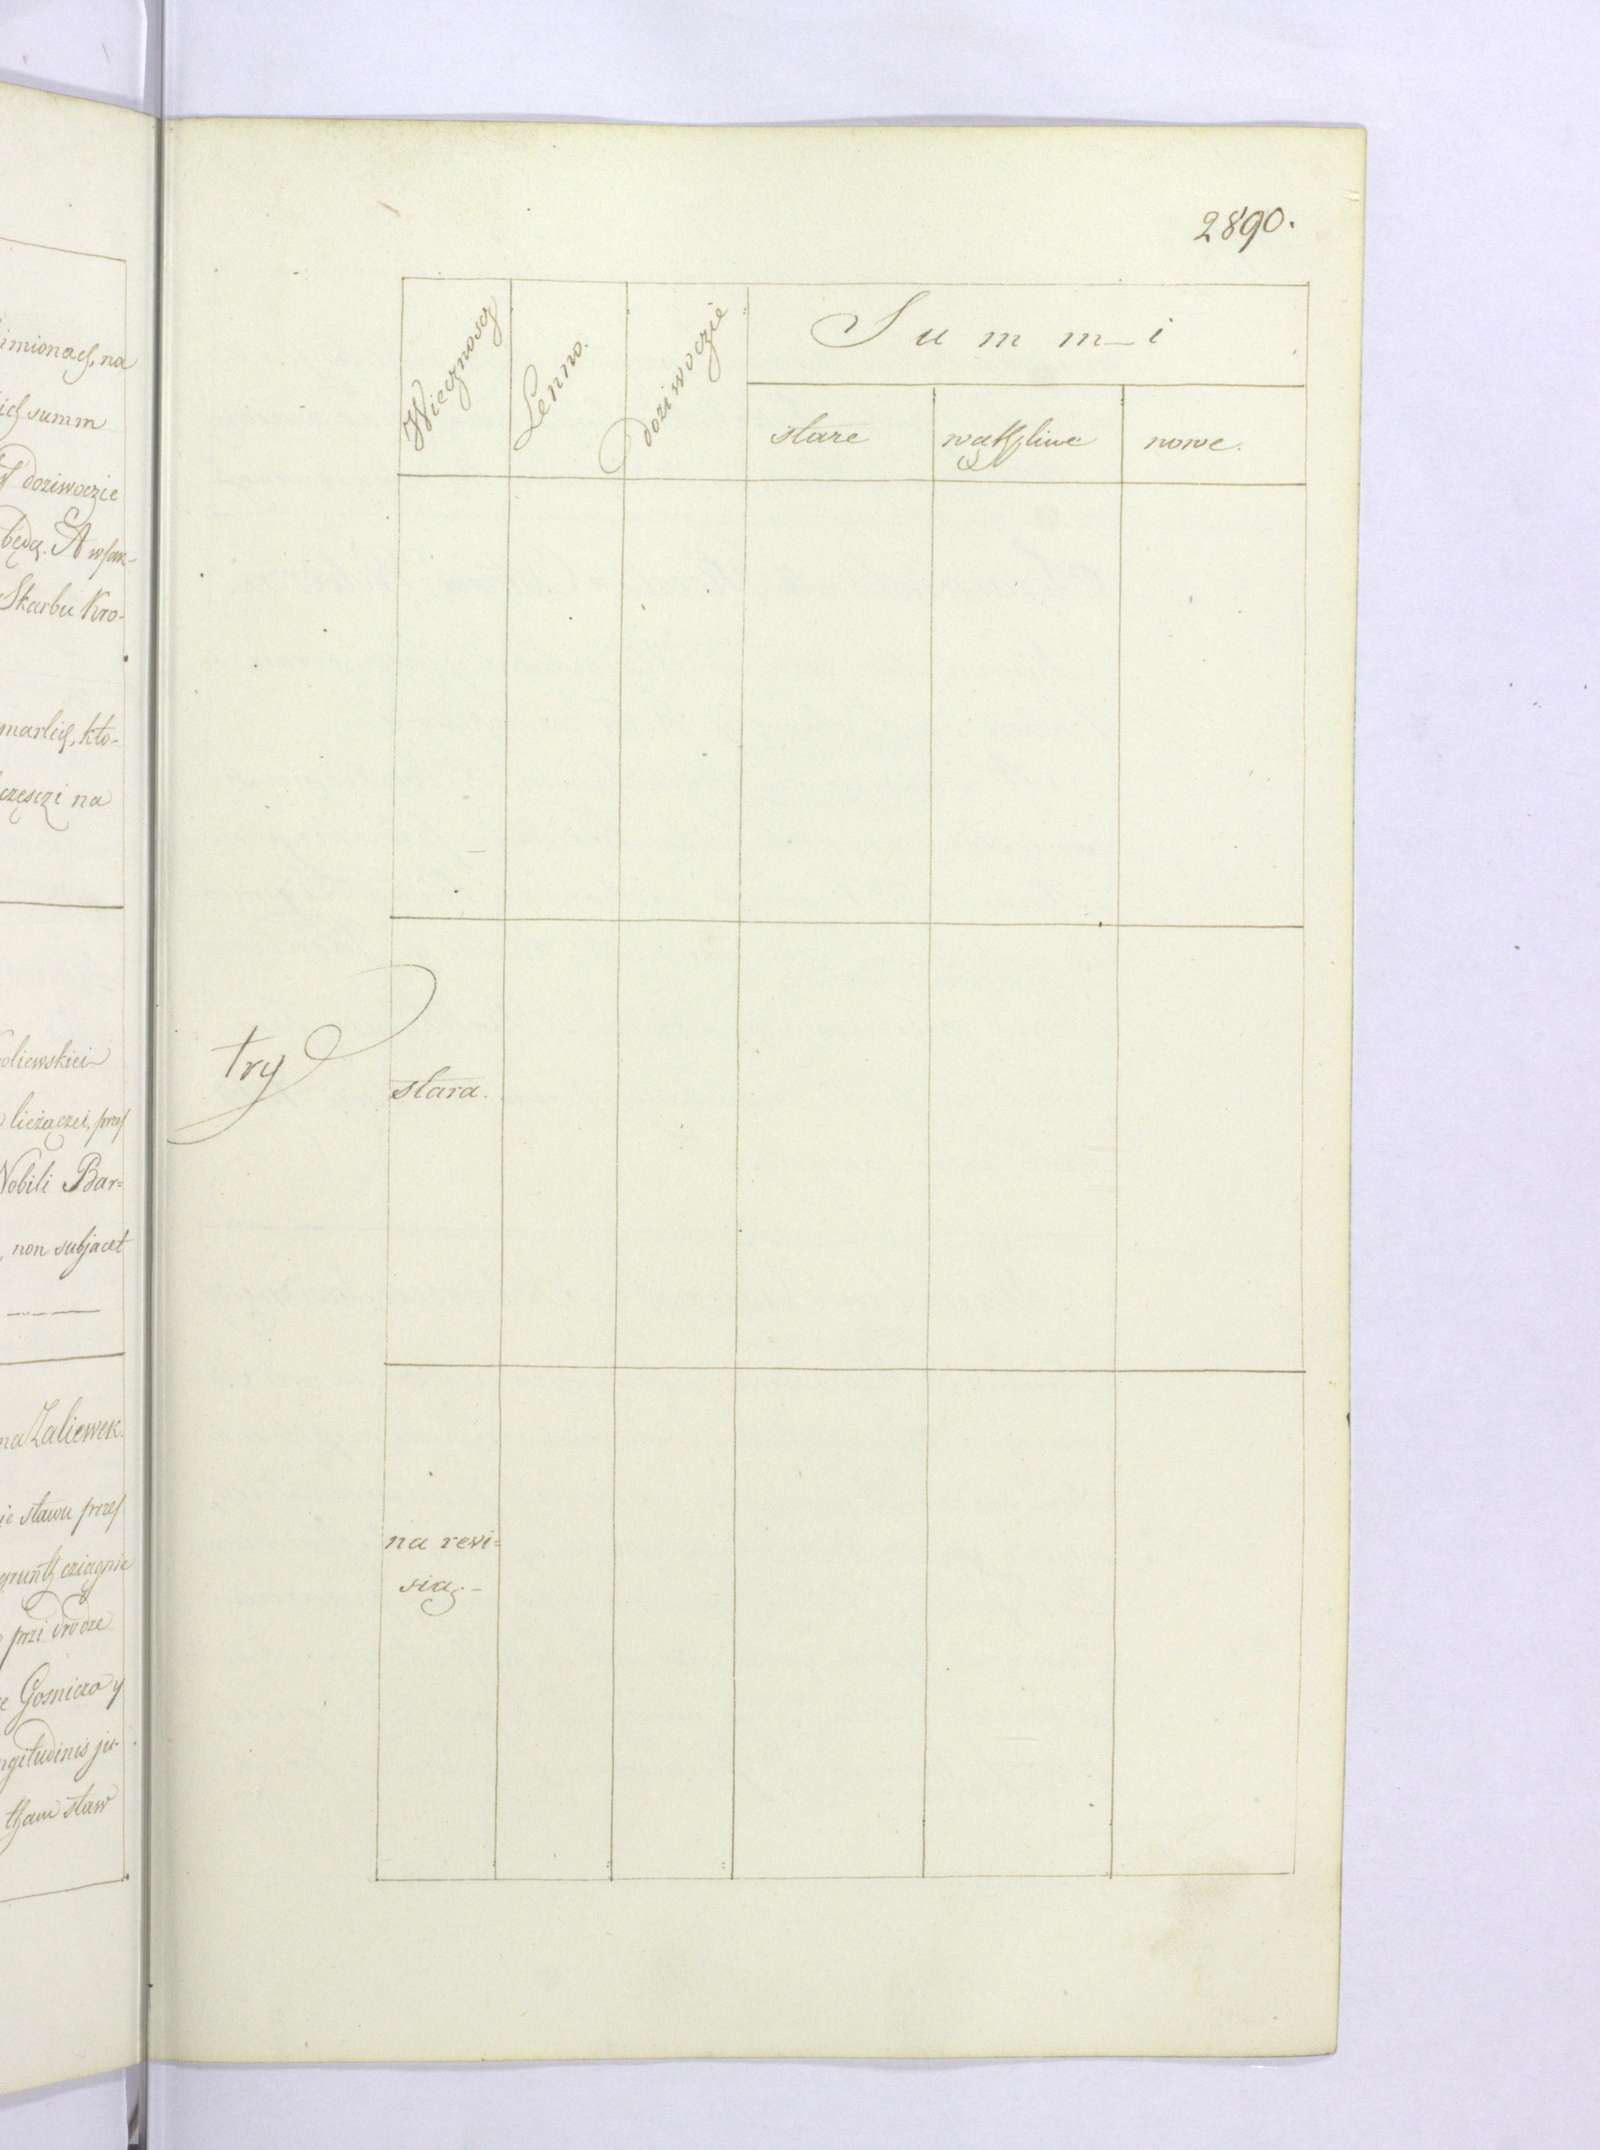 imionach, na
ich summ
doziwoczie
będą. A wszak-
Skarbu Kro-
marlich, kto-
częsczi na
oliewskiei
lieżączei, przes
Nobili Bar=
non subjacet
na Zaliewek.
ie stawu przes
grunth cziągnie
przi drodze
Gosniczo y
ngitudinis ju-
tham staw
2890.
Wiecznoscz
Lenno.
doziwoczie
Summ-i
stare
wathpliwe
nowe.
try
stara.
na revi=
sią.-